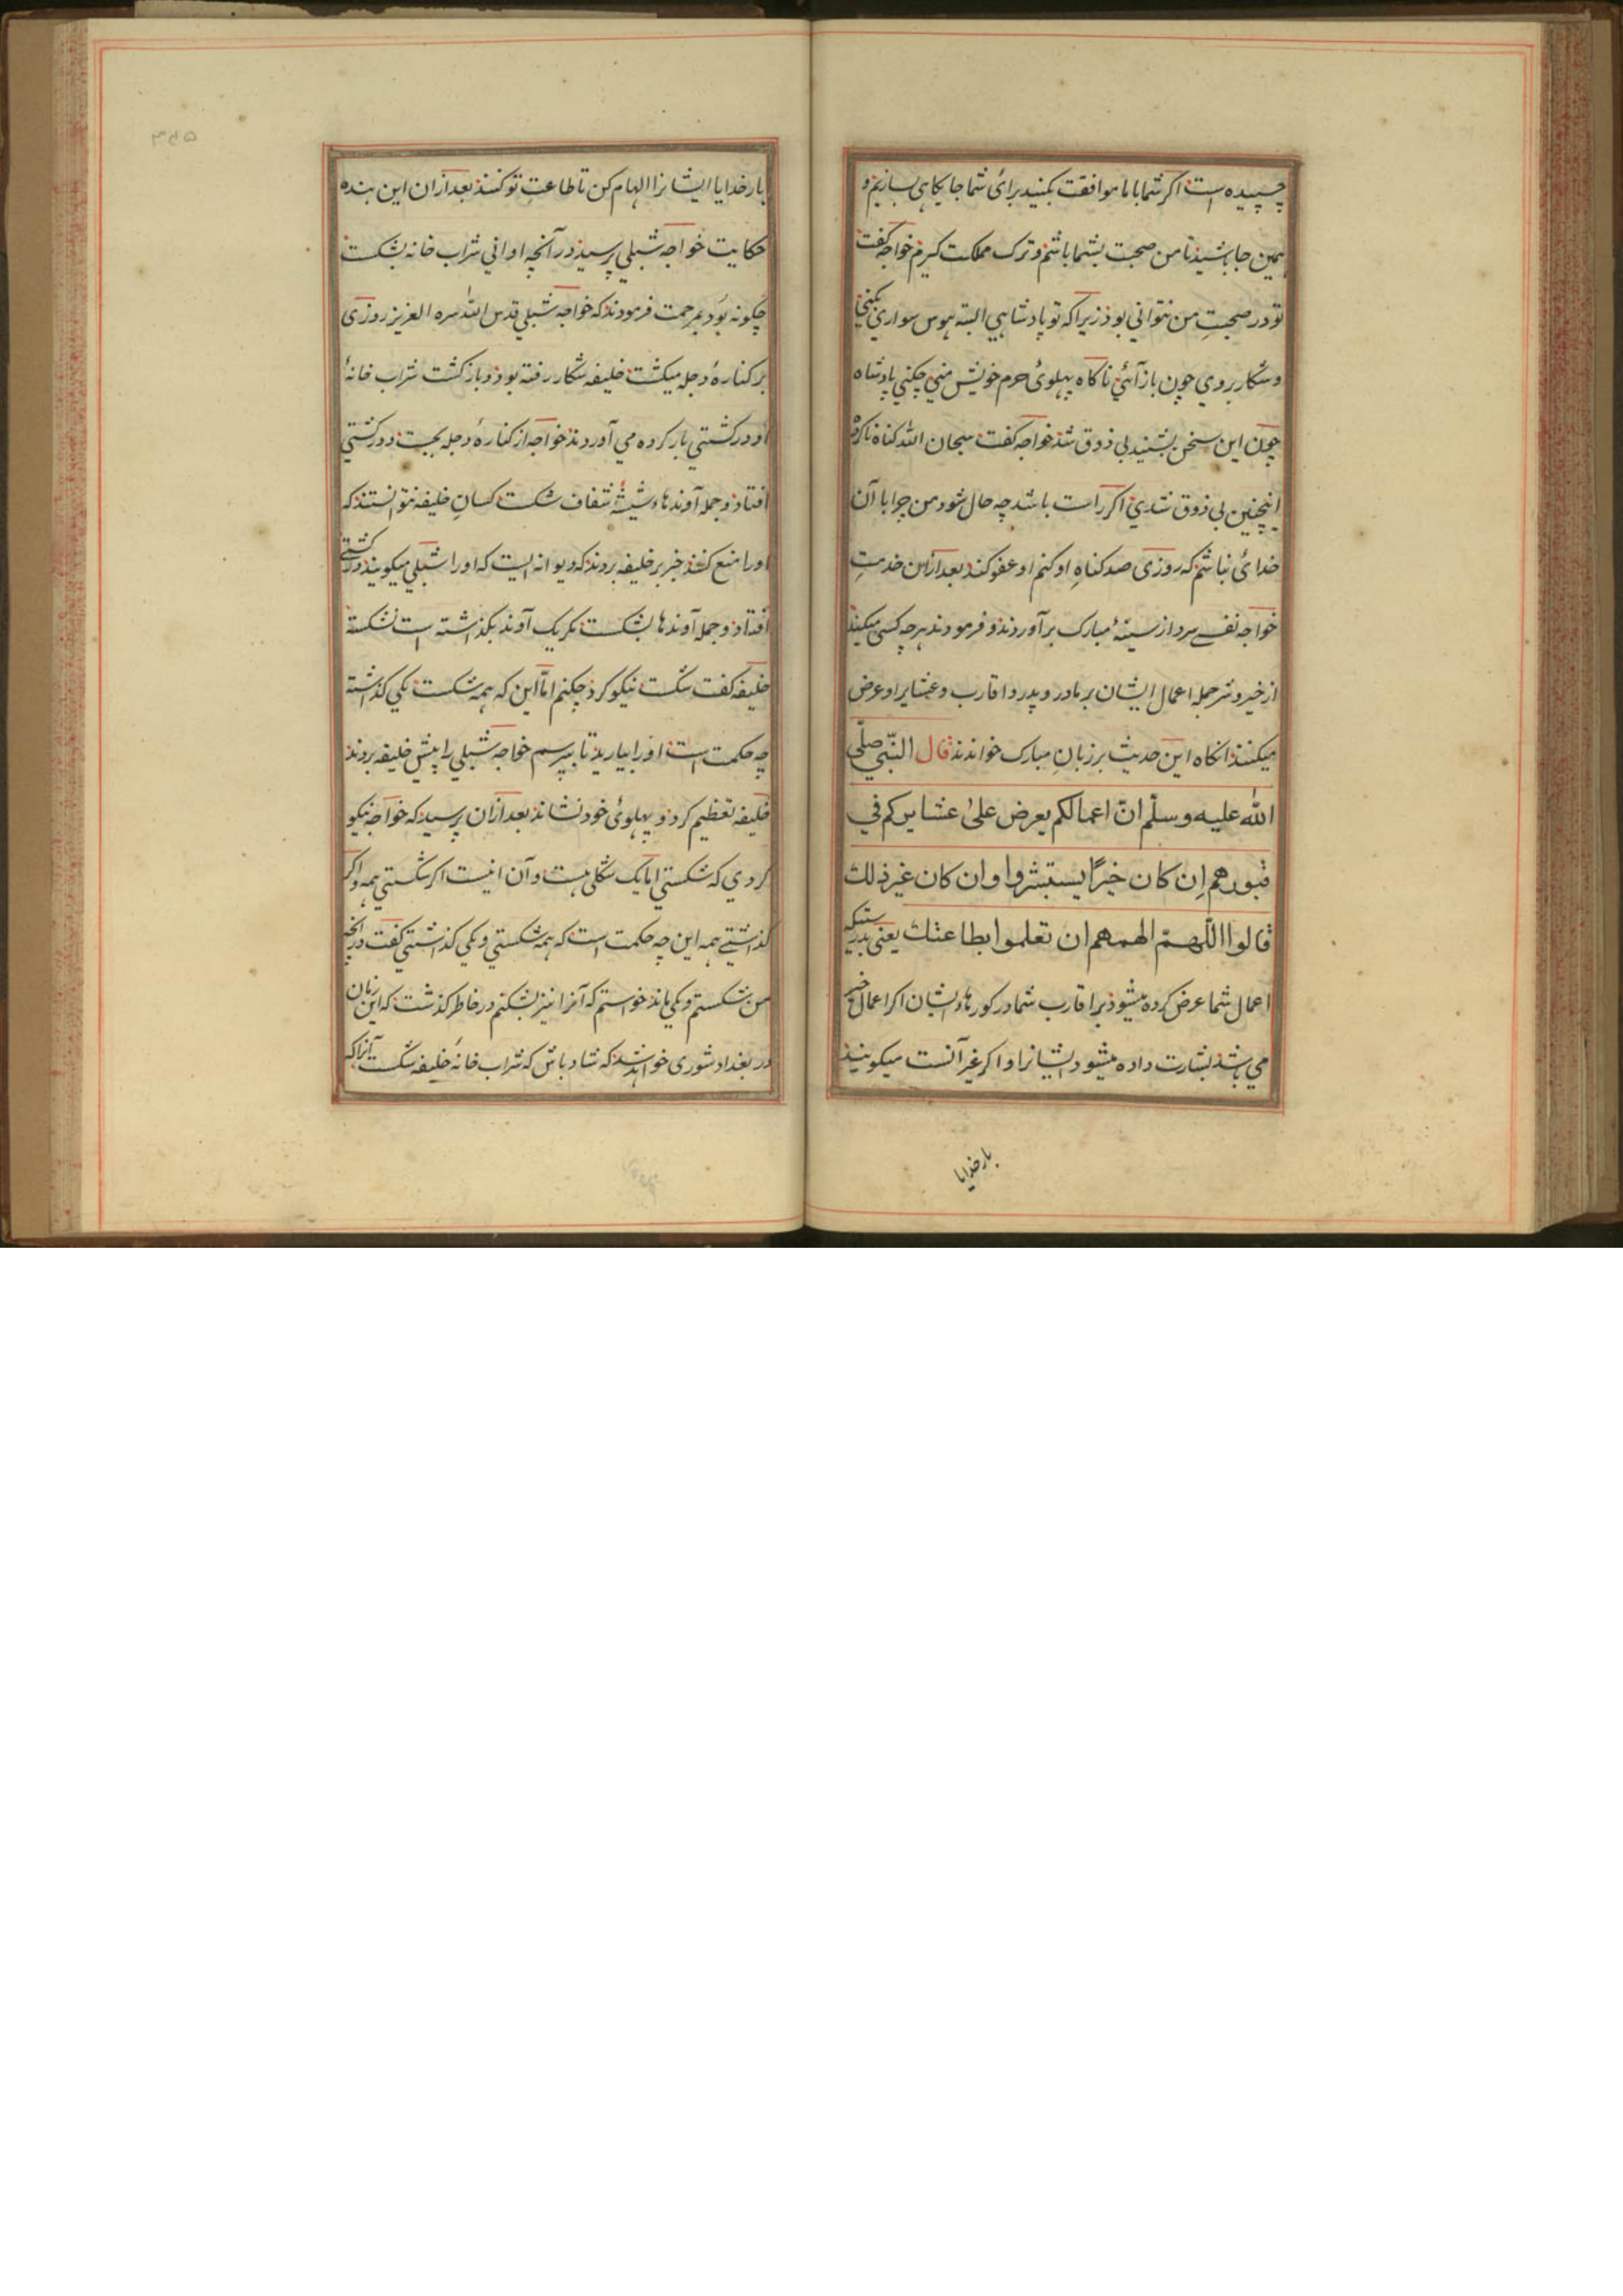 چسپیده است اکر شما باما موافقت بکنید برای شما جایکاهی بسازیم و
همین جا باشید تا من صحبت بشما باشم و ترک مملکت کیرم خواجه کفت
تو در صحبتِ من نتوانی بود زیراکه تو پادشاهی البته هوس سواری بکنی
و شکار بروی چون باز آئی ناکاه پهلوئ حرم خویش منی چکنی پادشاه
چون این سخن بشنید بی ذوق شد خواجه کفت سبحان الله کناه ناکرده
اینچنین بی ذوق شدی اکر راست باشد چه حال شود من چرا با آن
خدائ نباشم که روزی صد کناهِ او کنم او عفو کند بعد ازین خدمتِ
خواجه نفسے سرد از سینهٔ مبارک برآوردند و فرمودند هرچه کسی میکند
از خیر و شر جمله اعمال ایشان بر مادر و پدر و اقارب و عشایر او عرض
میکنند انکاه این حدیث بر زبانِ مبارک خواندند قال النّبی صلّی
الله علیه وسلّم انّ اعمالکم یعرض علی عشایرکم فی
قبورهم اِن کان خیرًا یستبشروا وان کان غیر ذلک
قالوا اللّهمّ الهمهم ان تعلموا بطاعتک یعنی بدرستیکه
اعمال شما عرض کرده میشود بر اقارب شما در کورهاء ایشان اکر اعمال خیر
می باشد بشارت داده میشود ایشانرا و اکر غیر آنست میکویند
بارخدایا
۳۶۵
بارخدایا ایشانرا الهام کن تا طاعتِ تو کنند بعد ازان این بنده
حکایت خواجه شبلی پرسید در آنچه اوانی شراب خانه بشکست
چکونه بود بمرحمت فرمودند که خواجه شبلی قدس الله سره العزیز روزی
بر کنارهٔ دجله میکشت خلیفه شکار رفته بود و باز کشت شراب خانهٔ
او در کشتی بار کرده می آوردند خواجه از کنارهٔ دجله بجست و در کشتی
افتاد و جمله آوندهاء شیشهٔ شفاف شکست کسانِ خلیفه نتوانستند که
اورا منع کنند خبر بر خلیفه بردند که دیوانه ایست که اورا شبلی میکویند در کشتی
افتاد و جمله آوندها بشکست مکر یک آوند بکذاشته است نشکسته
خلیفه کفت شکست نیکو کرد چکنم امّا این که همه شکست یکی کذاشته
چه حکمت است اورا بیارید تا بپرسم خواجه شبلی را پیش خلیفه بردند
خلیفه تعظیم کرد و پهلوئ خود نشاند بعد ازان پرسید که خواجه نیکو
کردی که شکستی اما یک شکلی هست و آن اینست اکر شکستی همه و اکر
کذاشتے همه این چه حکمت است که همه شکستی و یکی کذاشتی کفت در آنچه
من شکستم و یکی ماند خواستم که آنرا نیز بشکنم در خاطر کذشت که این زمان
در بغداد شوری خواهد شد که شاد باش که شراب خانهٔ خلیفه شکست آنراکه